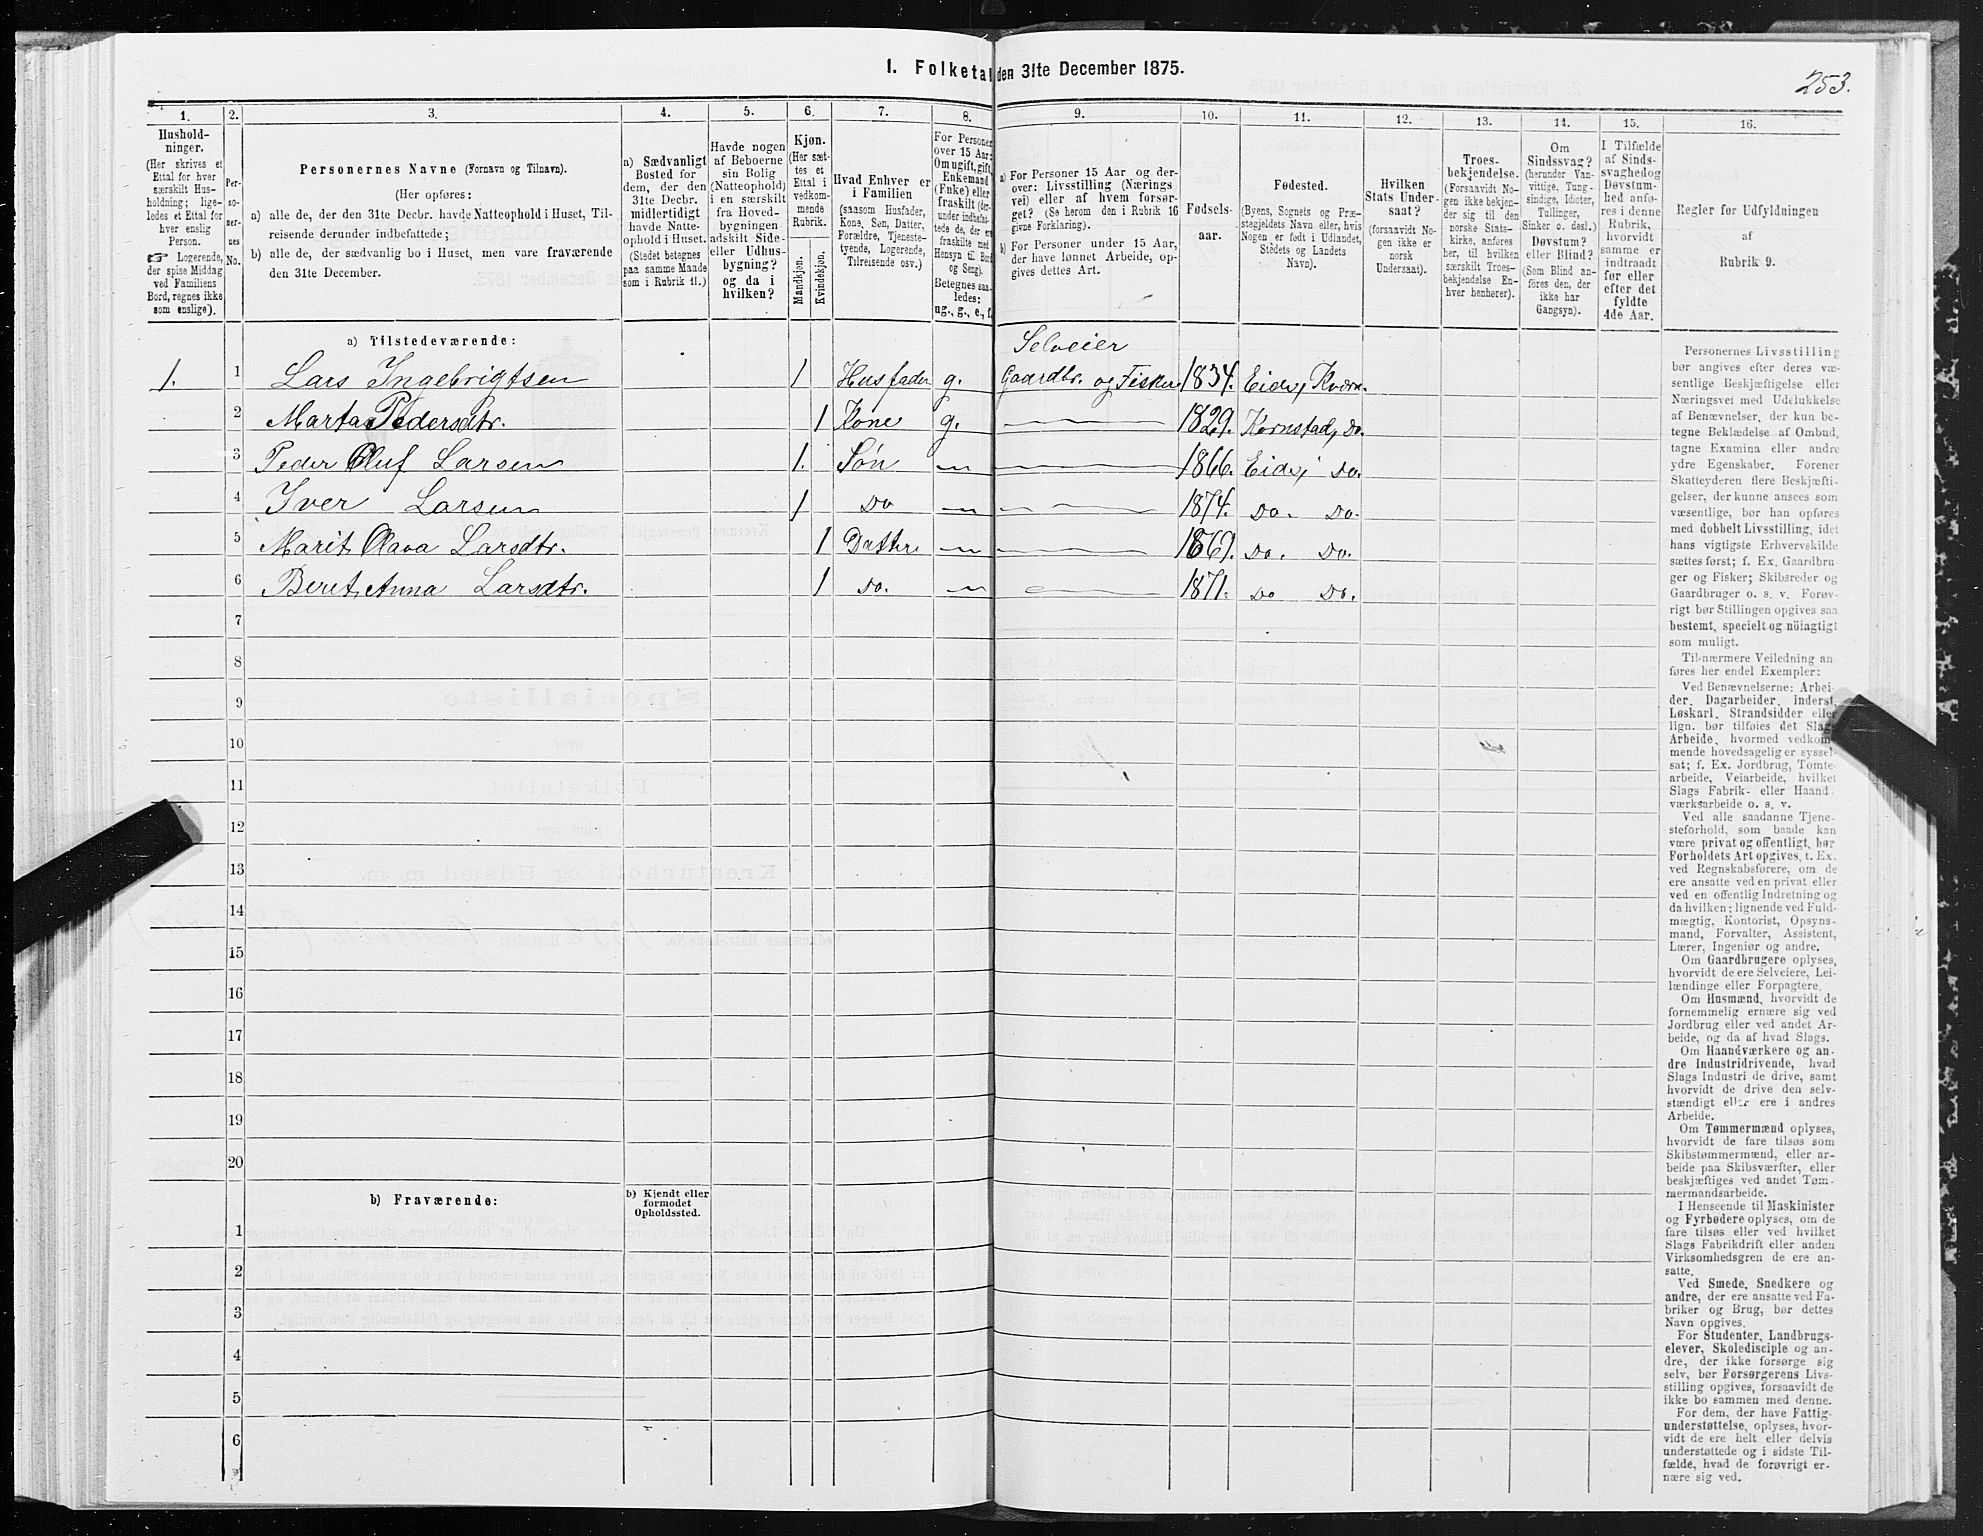 I. Folketal den 31te December 1875.
253.
1.
2.
3.
4.
5.
6.
7.
8.
9.
10.
11.
12.
13.
14.
15.
16.
Hushold-
ninger.
(Her skrives et
Ettal for hver
særskilt Hus-
holdning; lige-
ledes et Ettal for
hver enslig
Person.
☞ Logerende,
der spise Middag
ved Familiens
Bord, regnes ikke
som enslige).
Per-
so-
ner-
nes
No.
Personernes Navne (Fornavn og Tilnavn).
(Her opføres:
a) alle de, der den 31te Decbr. havde Natteophold i Huset, Til-
reisende derunder indbefattede;
b) alle de, der sædvanlig bo i Huset, men vare fraværende
den 31te December.
a) Sædvanligt
Bosted for
dem, der den
31te Decbr.
midlertidigt
havde Natte-
ophold i Huset.
(Stedet betegnes
paa samme Maade
som i Rubrik 11.)
Havde nogen
af Beboerne
sin Bolig
(Natteophold)
i en særskilt
fra Hoved-
bygningen
adskilt Side-
eller Udhus-
bygning?
og da i
hvilken?
Kjøn.
(Her sæt-
tes et
Ettal i
vedkom-
mende
Rubrik.
Mandkjøn.
Kvindekjøn.
Hvad Enhver er
i Familien
(saasom Husfader,
Kone, Søn, Datter,
Forældre, Tjeneste-
tyende, Logerende,
Tilreisende osv.).
For Personer
over 15 Aar:
Om ugift, gift,
Enkemand
(Enke) eller
fraskilt (der-
under indbefat-
tede de, der ere
fraskilte med
Hensyn til Bord
og Seng).
Betegnes saa-
ledes:
ug., g., e., f.
a) For Personer 15 Aar og der-
over: Livsstilling (Nærings
vei) eller af hvem forsør-
get? (Se herom den i Rubrik 16
givne Forklaring).
b) For Personer under 15 Aar,
der have lønnet Arbeide, op-
gives dettes Art.
Fødsels-
aar.
Fødested.
(Byens, Sognets og Præ-
stegjeldets Navn eller, hvis
Nogen er født i Udlandet,
Stedets og Landets
Navn).
Hvilken
Stats Under-
saat?
(forsaavidt No-
gen ikke er
norsk
Undersaat).
Troes-
bekjendelse.
(Forsaavidt No-
gen ikke bekjen-
der sig til den
norske Stats-
kirke, anføres
her, til hvilken
særskilt Troes-
bekjendelse En-
hver henhører).
Om
Sindssvag?
(herunder Van-
vittige, Tung-
sindige, Idioter,
Tullinger,
Sinker o. desl.)
Døvstum?
eller Blind?
(Som Blind an-
føres den, der
ikke har
Gangsyn).
I Tilfælde
af Sinds-
svaghed og
Døvstum-
hed anfø-
res i denne
Rubrik,
hvorvidt
samme er
indtraadt
før eller
efter det
fyldte
4de Aar.
Regler for Udfyldningen
af
Rubrik 9.
a) Tilstedeværende:
Selveier
1. 1 Lars Ingebrigtsen 1 Husfader g. Gaardbr. og Fisker 1834. Eide, Kværn.
2 Marta Pedersdtr. 1 Kone g. 1829. Kornstad, Do.
3 Peder Oluf Larsen 1. Søn 1866. Eide, Do.
4 Iver Larsen 1 Do 1874. Do. Do.
5 Marit Olava Larsdtr. 1 Datter 1869. Do. Do.
6 Beret Anna Larsdtr. 1 Do. 1871. Do Do.
7
8
9
10
11
12
13
14
15
16
17
18
19
20
b) Fraværende:
b) Kjendt eller
formodet
Opholdssted.
1
2
3
4
5
6
Personernes Livsstilling
bør angives efter deres væ-
sentlige Beskjæftigelse eller
Næringsvei med Udelukkelse
af Benævnelser, der kun be-
tegne Beklædelse af Ombud,
tagne Examina eller andre
ydre Egenskaber. Forener
Skatteyderen flere Beskjæfti-
gelser, der kunne ansees som
væsentlige, bør han opføres
med dobbelt Livsstilling, idet
hans vigtigste Erhvervskilde
sættes først; f. Ex. Gaardbru
ger og Fisker; Skibsreder og
Gaardbruger o. s. v. Forøv-
rigt bør Stillingen opgives saa
bestemt, specielt og nöiagtigt
som muligt.
Til nærmere Veiledning an
føres her endel Exempler:
Ved Benævnelserne: Arbei-
der, Dagarbeider, Inderst,
Løskarl, Strandsidder eller
lign. bør tilføies det Slags
Arbeide, hvormed vedkom-
mende hovedsagelig er syssel-
sat; f. Ex. Jordbrug, Tomte-
arbeide, Veiarbeide, hvilket
Slags Fabrik- eller Haand-
værksarbeide o. s. v.
Ved alle saadanne Tjene-
steforhold, som baade kan
være privat og offentligt, bør
Forholdets Art opgives, t. Ex.
ved Regnskabsførere, om de
ere ansatte ved en privat eller
ved en offentlig Indretning og
da hvilken; lignende ved Fuld-
mægtig, Kontorist, Opsyns-
mand, Forvalter, Assistent,
Lærer, Ingeniør og andre.
Om Gaardbrugere oplyses,
hvorvidt de ere Selveiere, Lei-
lændinge eller Forpagtere.
Om Husmænd, hvorvidt de
fornemmelig ernære sig ved
Jordbrug eller ved andet Ar-
beide, og da af hvad Slags.
Om Haandværkere og an-
dre Industridrivende, hvad
Slags Industri de drive, samt
hvorvidt de drive den selv-
stændigt eller ere i andres
Arbeide.
Om Tømmermænd oplyses,
hvorvidt de fare tilsøs som
Skibstømmermænd, eller ar-
beide paa Skibsværfter, eller
beskjæftiges ved andet Tøm-
mermandsarbeide.
I Henseende til Maskinister
og Fyrbødere oplyses, om de
fare tilsøs eller ved hvilket
Slags Fabrikdrift eller anden
Virksomhedsgren de ere an-
satte.
Ved Smede, Snedkere og
andre, der ere ansatte ved Fa-
briker og Brug, bør dettes
Navn opgives.
For Studenter, Landbrugs-
elever, Skoledisciple og an-
dre, der ikke forsørge sig
selv, bør Forsørgerens Livs-
stilling opgives, forsaavidt de
ikke bo sammen med denne.
For dem, der have Fattig-
understøttelse, oplyses, hvor-
vidt de ere helt eller delvis
understøttede og i sidste Til-
fælde, hvad de forøvrigt er-
nære sig ved.